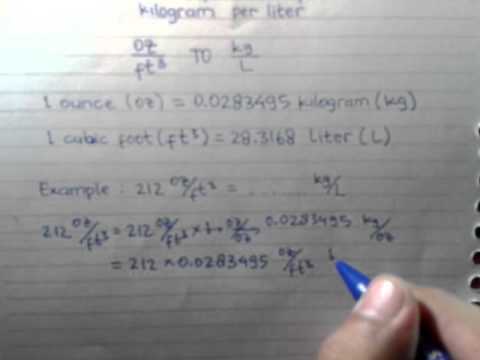 kilogram per liter
oz/ft³ TO kg/L
1 ounce (oz) = 0.0283495 kilogram (kg)
1 cubic foot (ft³) = 28.3168 Liter (L)
Example : 212 oz/ft³ = ........ kg/L
212 oz/ft³ = 212 oz/ft³ × 0.0283495 kg/oz
= 212 × 0.0283495 oz/ft³